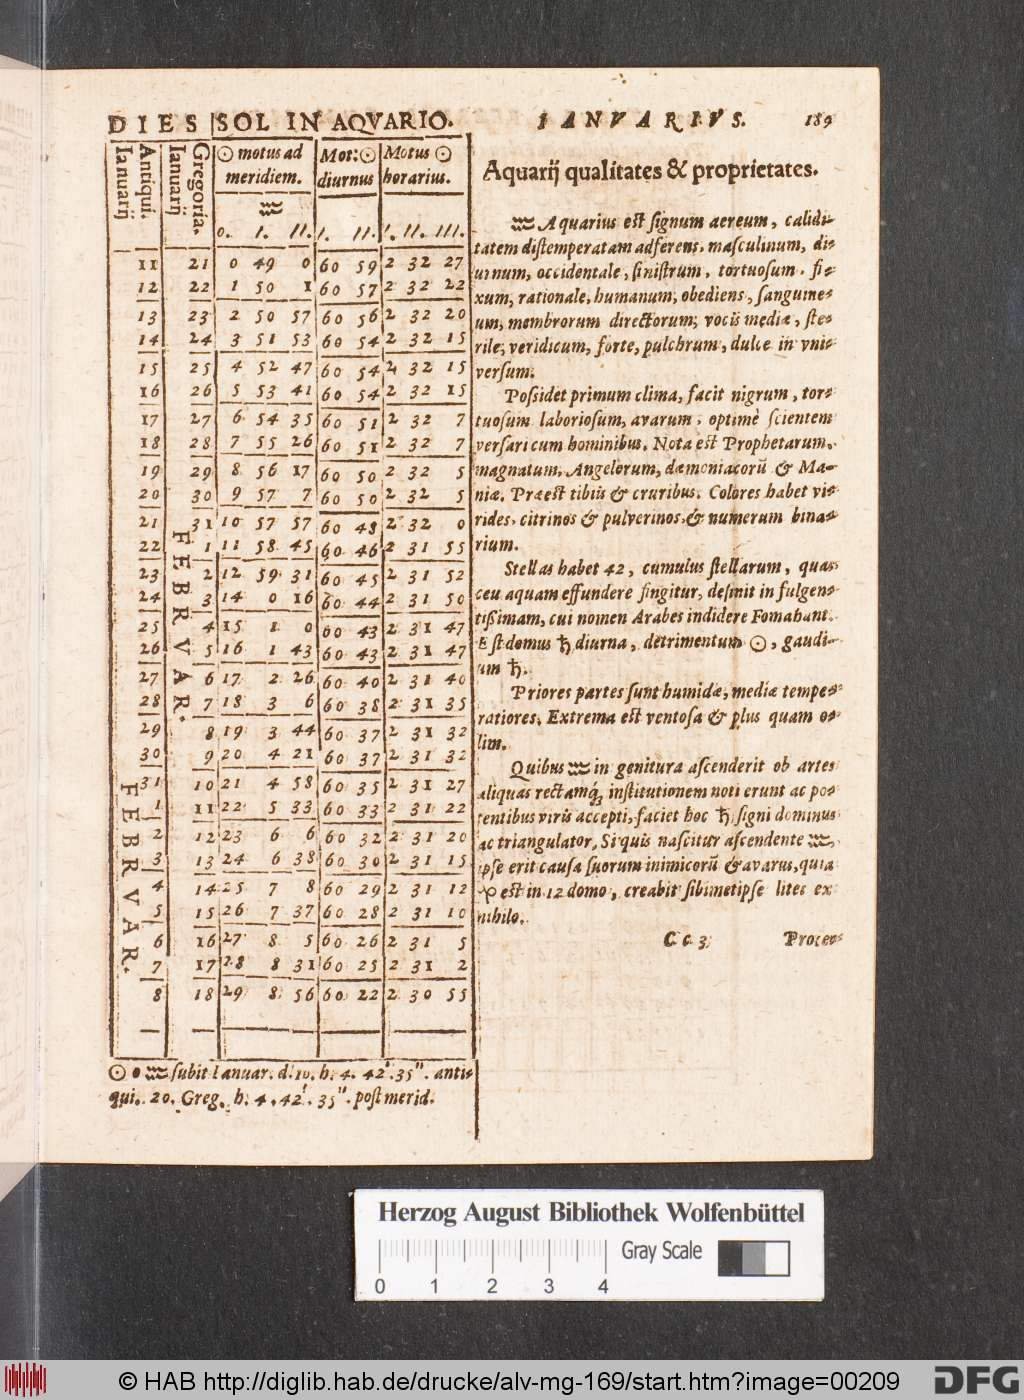 DIES SOL IN AQVARIO. IANVARIVS. 189
Antiqui. Ianuarij
Gregoria. Ianuarij
☉ motus ad meridiem.
Mot: ☉ diurnus
Motus ☉ horarius.
♒
0. I. II. I. II. I. II. III.
11 21 0 49 0 60 59 2 32 27
12 22 1 50 1 60 57 2 32 22
13 23 2 50 57 60 56 2 32 20
14 24 3 51 53 60 54 2 32 15
15 25 4 52 47 60 54 2 32 15
16 26 5 53 41 60 54 2 32 15
17 27 6 54 35 60 51 2 32 7
18 28 7 55 26 60 51 2 32 7
19 29 8 56 17 60 50 2 32 5
20 30 9 57 7 60 50 2 32 5
21 31 10 57 57 60 48 2 32 0
FEBRVAR.
22 1 11 58 45 60 46 2 31 55
23 2 12 59 31 60 45 2 31 52
24 3 14 0 16 60 44 2 31 50
25 4 15 1 0 60 43 2 31 47
26 5 16 1 43 60 43 2 31 47
27 6 17 2 26 60 40 2 31 40
28 7 18 3 6 60 38 2 31 35
29 8 19 3 44 60 37 2 31 32
30 9 20 4 21 60 37 2 31 32
31 10 21 4 58 60 35 2 31 27
FEBRVAR.
1 11 22 5 33 60 33 2 31 22
2 12 23 6 6 60 32 2 31 20
3 13 24 6 38 60 30 2 31 15
4 14 25 7 8 60 29 2 31 12
5 15 26 7 37 60 28 2 31 10
6 16 27 8 5 60 26 2 31 5
7 17 28 8 31 60 25 2 31 2
8 18 29 8 56 60 22 2 30 55
☉ 0 ♒ subit Ianuar. d. 10. h. 4. 42'. 35''. anti-
qui. 20. Greg. h. 4. 42'. 35''. post merid.
Aquarij qualitates & proprietates.
♒ Aquarius est signum aereum, calidi-
tatem distemperatam adferens, masculinum, di-
urnum, occidentale, sinistrum, tortuosum, fi-
xum, rationale, humanum, obediens, sanguine-
um, membrorum directorum, vocis mediæ, ste-
rile, veridicum, forte, pulchrum, dulce in vni-
versum.
Possidet primum clima, facit nigrum, tor-
tuosum laboriosum, avarum, optimè scientem
versari cum hominibus. Nota est Prophetarum,
magnatum, Angelorum, dæmoniacorũ & Ma-
niæ. Præest tibiis & cruribus. Colores habet vi-
rides, citrinos & pulverinos, & numerum bina-
rium.
Stellas habet 42, cumulus stellarum, quas
ceu aquam effundere fingitur, desinit in fulgen-
tißimam, cui nomen Arabes indidere Fomahant.
Est domus ♄ diurna, detrimentum ☉, gaudi-
um ♄.
Priores partes sunt humidæ, mediæ tempe-
ratiores. Extrema est ventosa & plus quam o-
lim.
Quibus ♒ in genitura ascenderit ob artes
aliquas rectamq; institutionem noti erunt ac po-
tentibus viris accepti, faciet hoc ♄ signi dominus
ac triangulator. Si quis nascitur ascendente ♒,
ipse erit causa suorum inimicorũ & avarus, quia
♑ est in 12 domo, creabit sibimetipse lites ex
nihilo.
Cc 3 Proces-
Herzog August Bibliothek Wolfenbüttel
0 1 2 3 4 Gray Scale
© HAB http://diglib.hab.de/drucke/alv-mg-169/start.htm?image=00209 DFG